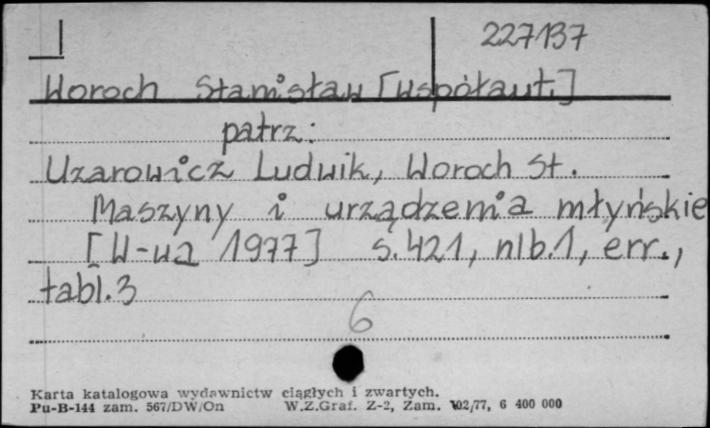 227137
Woroch Stanisław [współaut.]
patrz:
Uzarowicz Ludwik, Woroch St.
Maszyny i urządzenia młyńskie
[W-wa 1977] s. 421, nlb. 1, err.,
tabl. 3
6
Karta katalogowa wydawnictw ciągłych i zwartych.
Pu-B-144 zam. 567/DW/On W.Z.Graf. Z-2, Zam. 102/77, 6 400 000